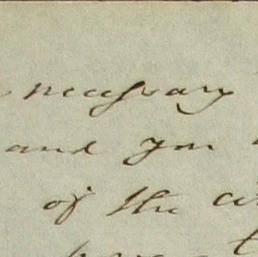 necessary
and you
of the